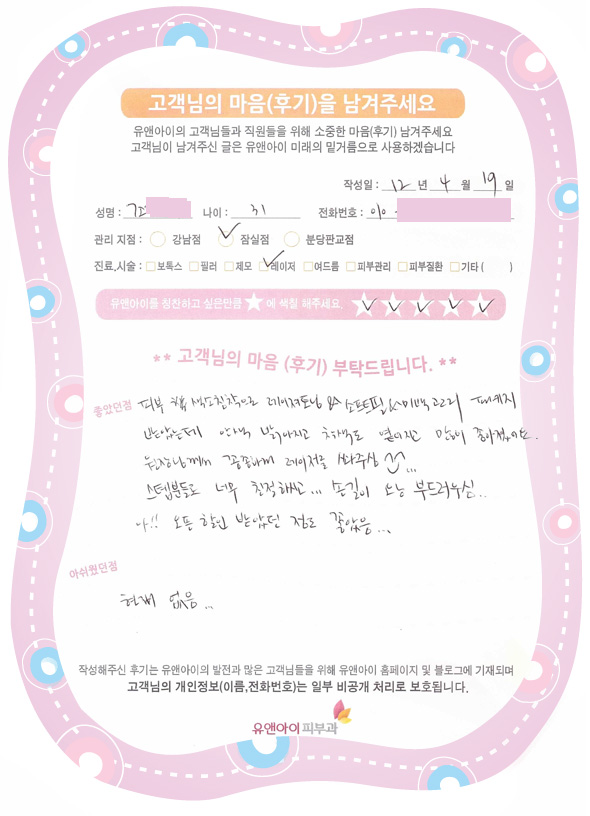 고객님의 마음(후기)을 남겨주세요
유앤아이의 고객님들과 직원들을 위해 소중한 마음(후기) 남겨주세요
고객님이 남겨주신 글은 유앤아이 미래의 밑거름으로 사용하겠습니다
작성일 : 12 년 4 월 19 일
성명 : 나이 : 31 전화번호 : 010 -
관리 지점 : 강남점 잠실점 분당판교점
진료,시술 : 보톡스 필러 제모 레이저 여드름 피부관리 피부질환 기타 ( )
유앤아이를 칭찬하고 싶은만큼 ★ 에 색칠 해주세요. ★★★★★
** 고객님의 마음 (후기) 부탁드립니다. **
좋았던점 피부 색소침착으로 레이져토닝 & 소프트필 & 미백관리 패키지
받았는데 안색 밝아지고 색도 옅어지고 많이 좋아졌어요.
원장님께서 꼼꼼하게 레이저를 쏴주심 ...
스텝분들도 너무 친절하시고... 손길이 부드러우심..
아!! 오픈 할인 받았던 점도 좋았음...
아쉬웠던점
현재 없음...
작성해주신 후기는 유앤아이의 발전과 많은 고객님들을 위해 유앤아이 홈페이지 및 블로그에 기재되며
고객님의 개인정보(이름,전화번호)는 일부 비공개 처리로 보호됩니다.
유앤아이 피부과